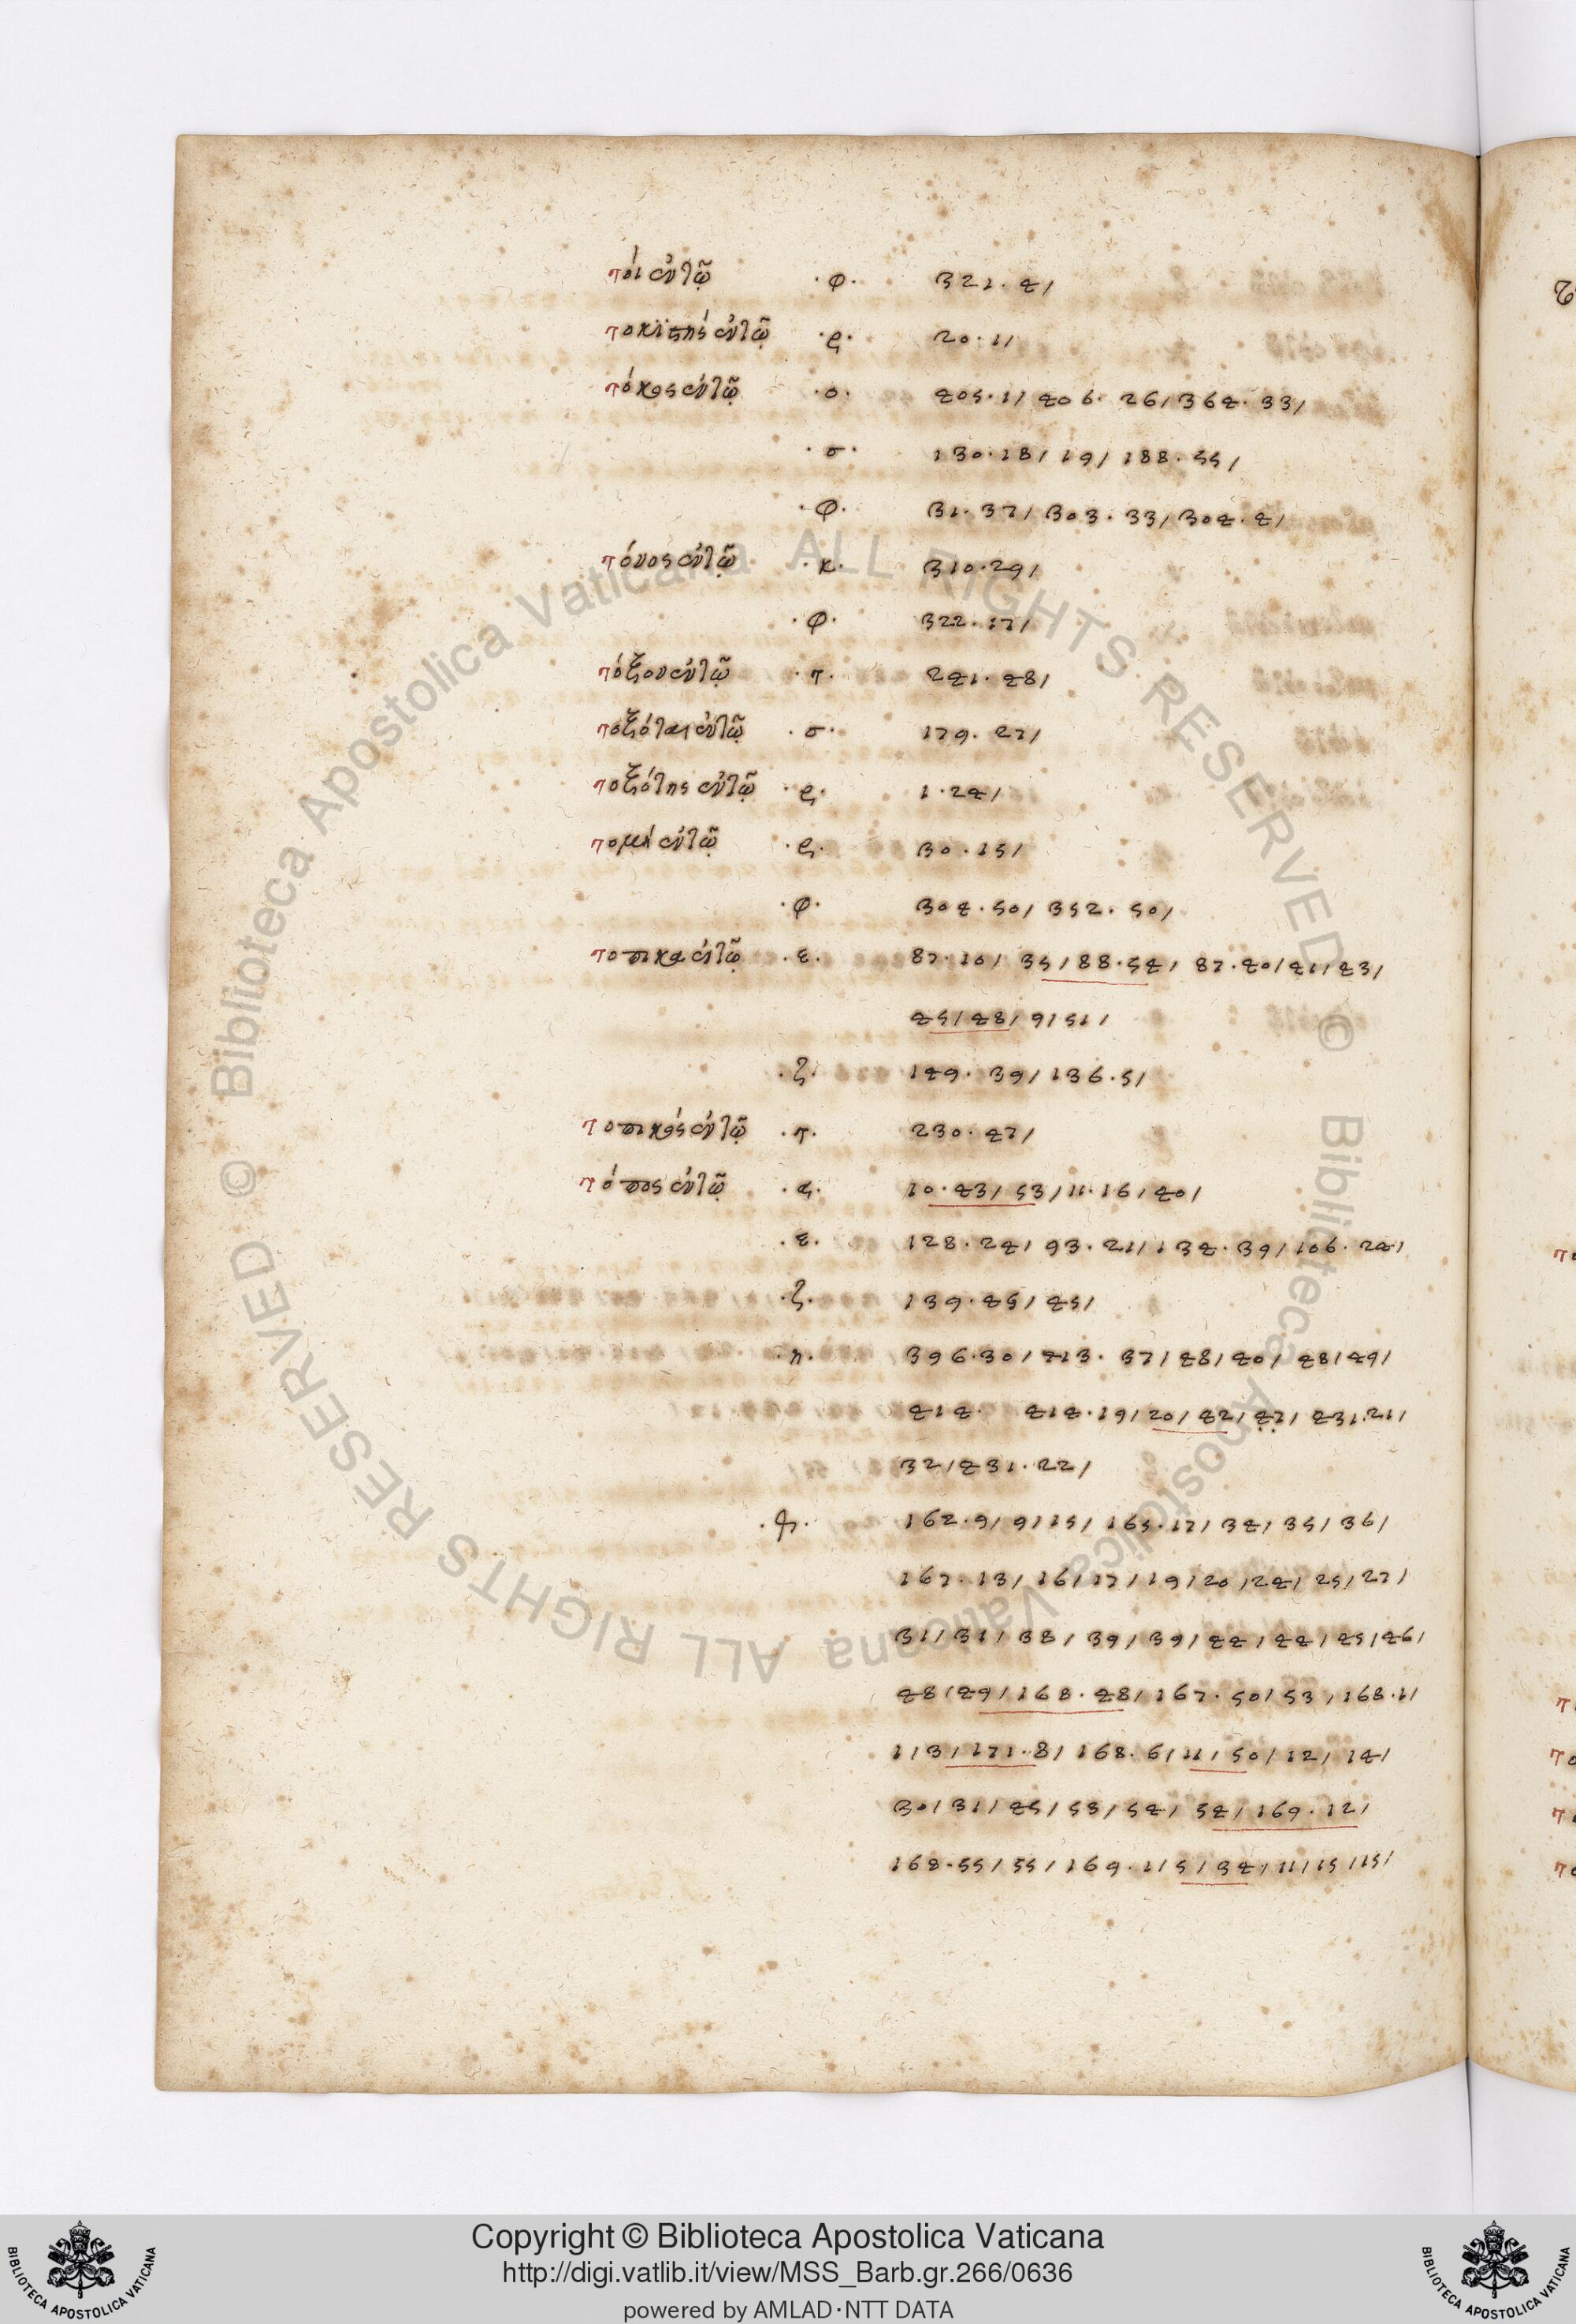 τοι ἐν τῷ ·φ· 321·4/
τοκιστής ἐν τῷ ·ρ· 20·1/
τόκος ἐν τῷ ·ο· 405·1/ 406·26/ 364·33/
·σ· 130·18/ 19/ 188·55/
·φ· 31·37/ 303·33/ 304·4/
τόνος ἐν τῷ ·κ· 310·29/
·φ· 322·17/
τόξον ἐν τῷ ·τ· 241·48/
τοξόται ἐν τῷ ·σ· 179·27/
τοξότης ἐν τῷ ·ρ· 1·24/
τομή ἐν τῷ ·ρ· 30·15/
·φ· 304·50/ 352·50/
τοπικα ἐν τῷ ·ε· 87·10/ 35/ 88·54/ 87·40/ 41/ 43/
45/ 48/ 9/ 51/
·ζ· 149·39/ 136·5/
τοπικός ἐν τῷ ·τ· 230·47/
τόπος ἐν τῷ ·α· 10·43/ 53/ 11·16/ 40/
·ε· 128·24/ 93·21/ 134·39/ 106·24/
·ζ· 139·45/ 45/
·η· 396·30/ 413·37/ 48/ 40/ 48/ 49/
414· 414·19/ 20/ 42/ 47/ 431·21/
32/ 431·22/
162·9/ 9/ 15/ 165·17/ 34/ 35/ 36/
167·13/ 16/ 17/ 19/ 20/ 24/ 25/ 27/
31/ 31/ 38/ 39/ 39/ 44/ 44/ 45/ 46/
48/ 49/ 168·48/ 167·50/ 53/ 168·1/
1/ 3/ 171·8/ 168·6/ 11/ 50/ 12/ 14/
30/ 31/ 45/ 53/ 54/ 54/ 169·12/
168·55/ 55/ 169·1/ 5/ 34/ 11/ 15/ 15/
Copyright © Biblioteca Apostolica Vaticana
http://digi.vatlib.it/view/MSS_Barb.gr.266/0636
powered by AMLAD·NTT DATA
BIBLIOTECA APOSTOLICA VATICANA
BIBLIOTECA APOSTOLICA VATICANA
© Biblioteca Apostolica Vaticana ALL RIGHTS RESERVED © Biblioteca Apostolica Vaticana ALL RIGHTS RESERVED